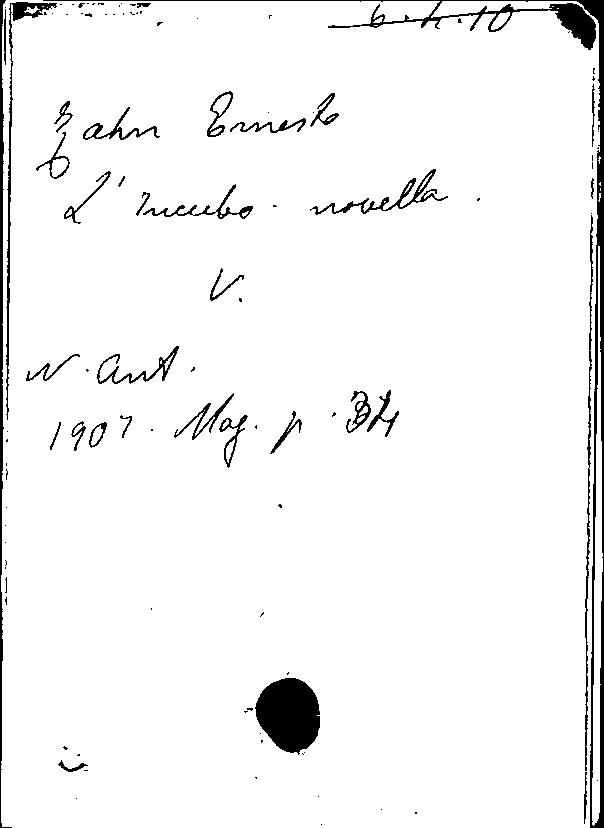 6.h.10
Zahn Ernesto
L'Incubo - novella.
V.
N. Ant.
1907. Mag. p. 34